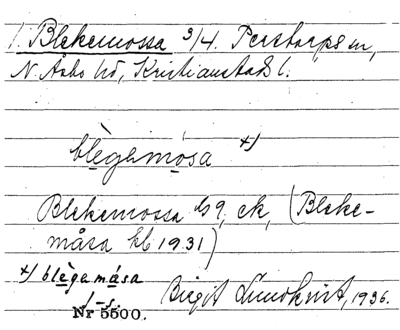 1. Blekemossa 3/4. Perstorps sn,
N. Åsbo hd, Kristianstads l.
blègamósa x)
Blekemossa ek, (Bleke-
måsa kb 1931)
x) blègamása
Birgit Lundkvist, 1936.
Nr 5500.